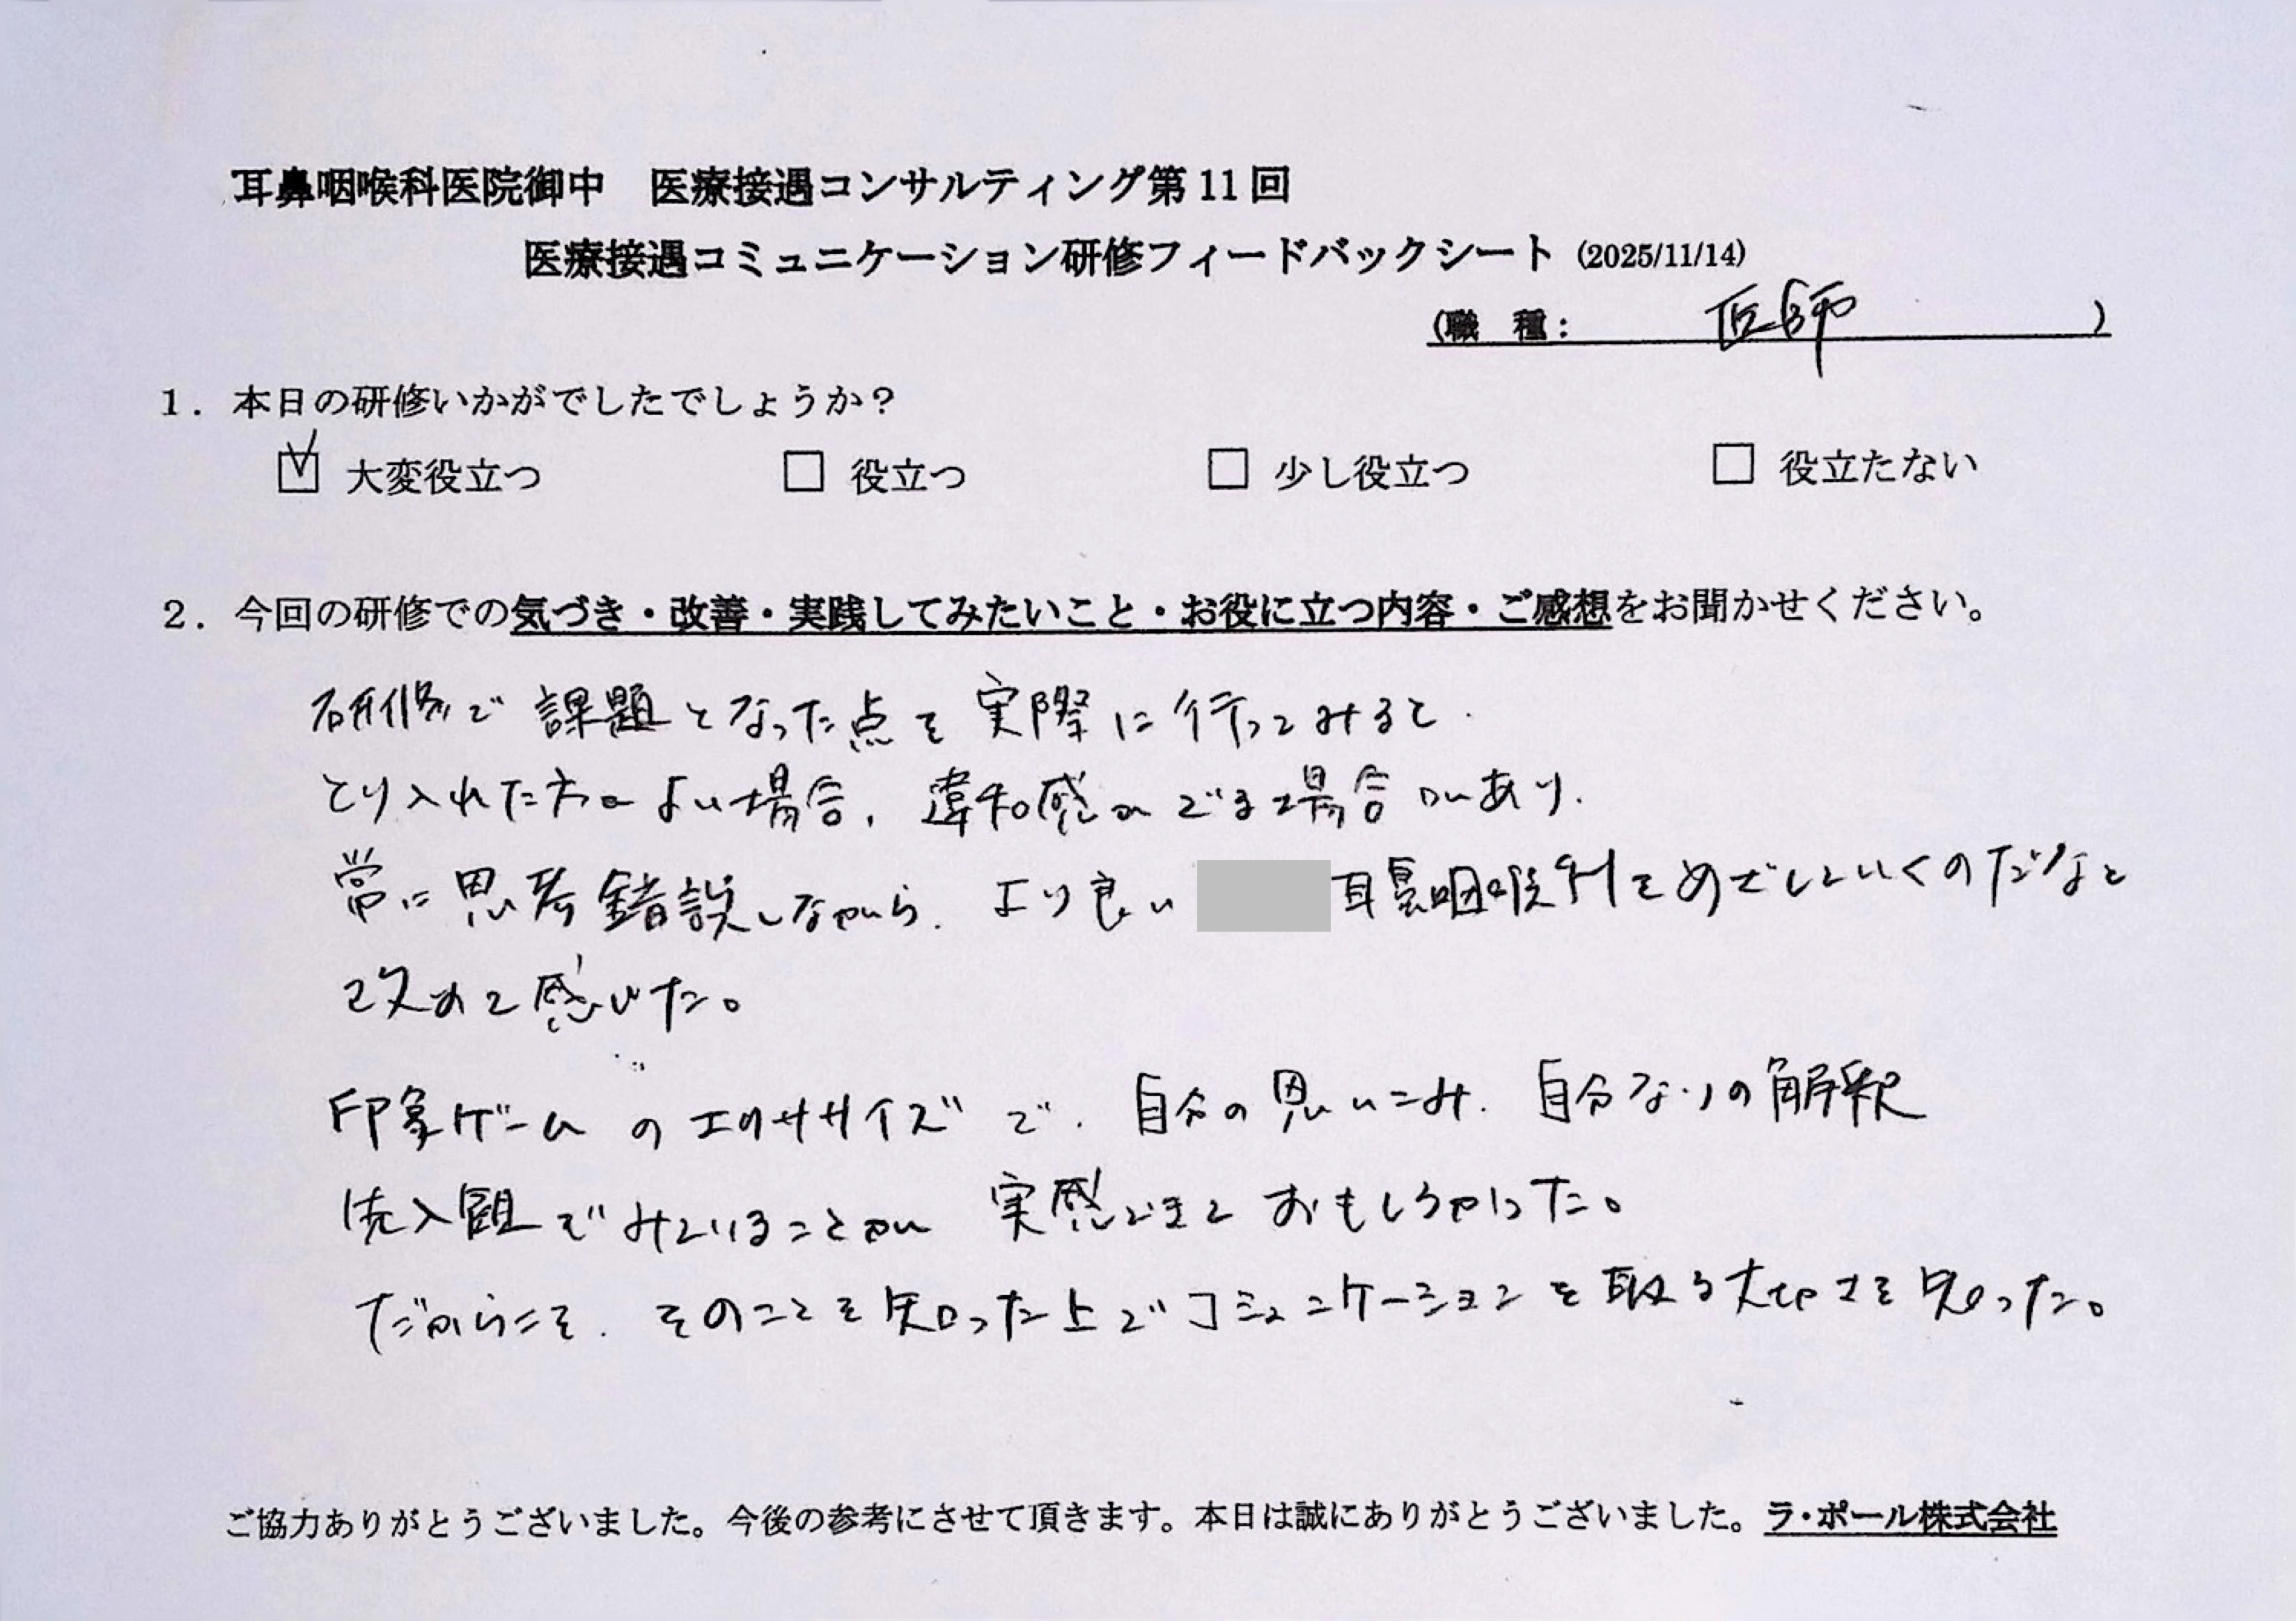 耳鼻咽喉科医院御中　医療接遇コンサルティング第11回
医療接遇コミュニケーション研修フィードバックシート (2025/11/14)
(職　種：　医師　)
1．本日の研修いかがでしたでしょうか？
☑ 大変役立つ　□ 役立つ　□ 少し役立つ　□ 役立たない
2．今回の研修での気づき・改善・実践してみたいこと・お役に立つ内容・ご感想をお聞かせください。
研修で課題となった点を実際に行ってみると、
とり入れた方がよい場合、違和感がでる場合があり、
常に思考錯誤しながら、より良い 耳鼻咽喉科をめざしていくのだなと
改めて感じた。
印象ゲームのエクササイズで、自分の思いこみ、自分なりの解釈
先入観でみていることが実感できておもしろかった。
だからこそ、そのことを知った上でコミュニケーションを取る大切さを知った。
ご協力ありがとうございました。今後の参考にさせて頂きます。本日は誠にありがとうございました。ラ・ポール株式会社